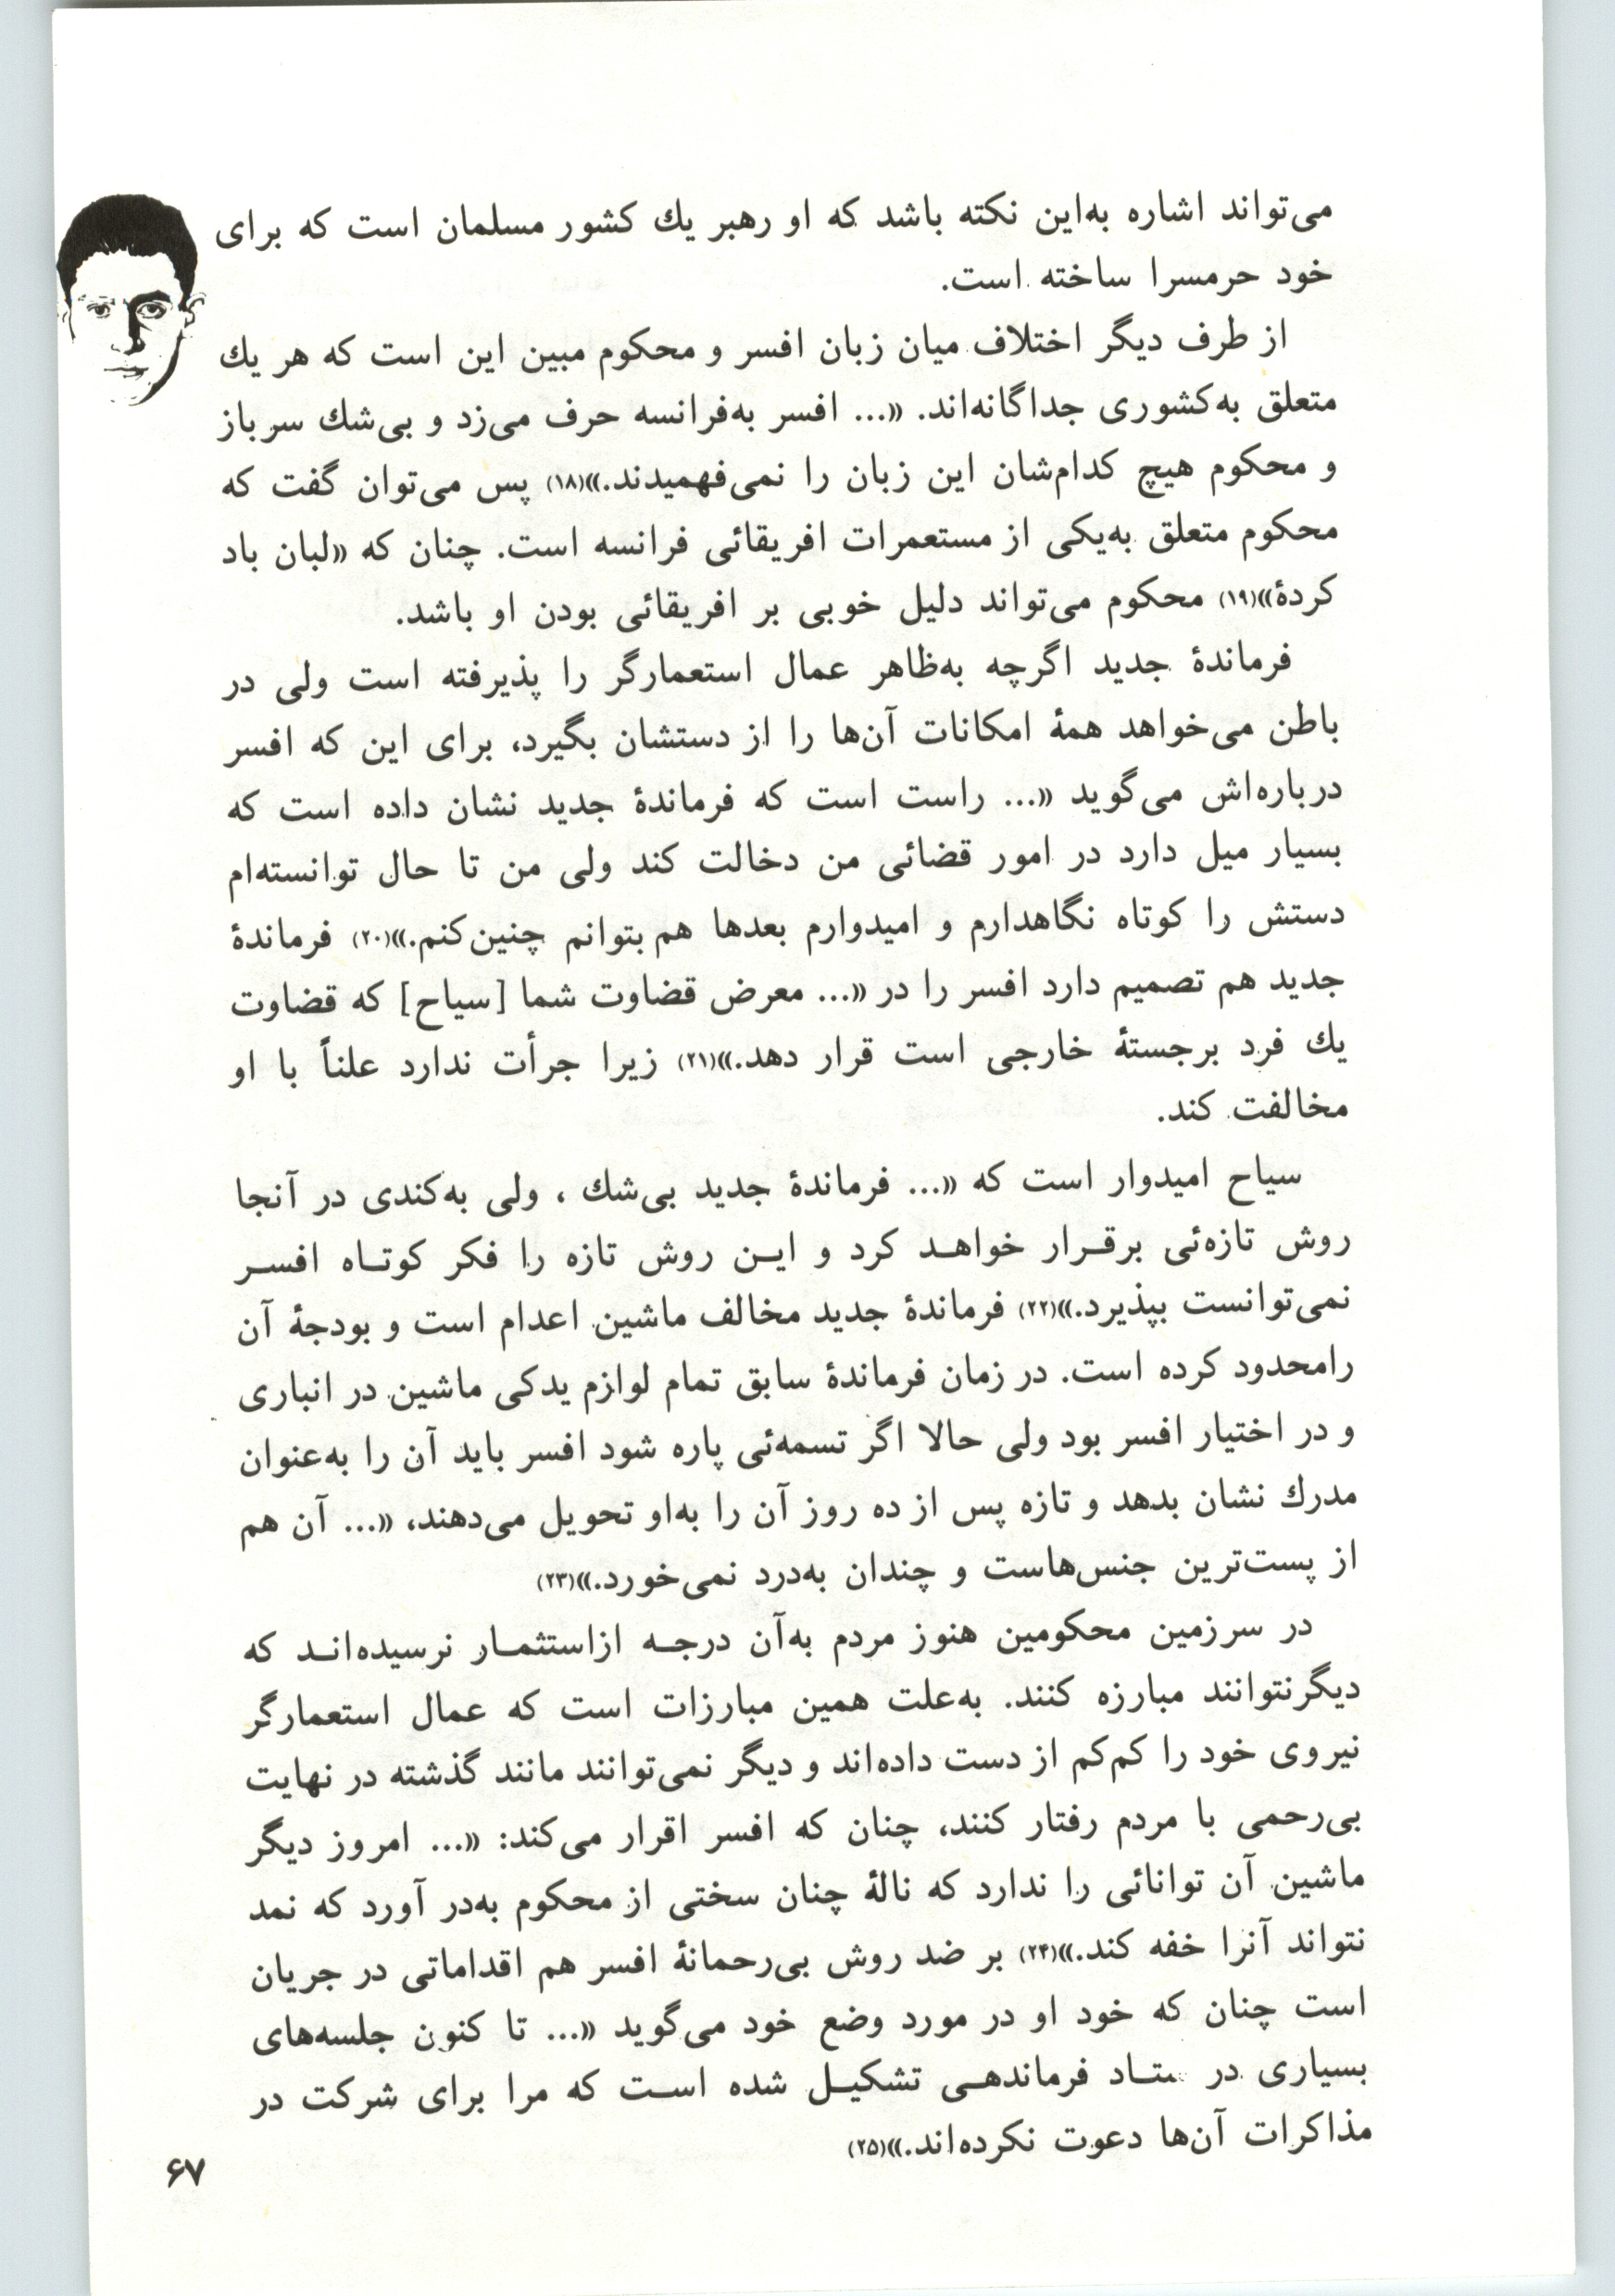 می‌تواند اشاره به‌این نکته باشد که او رهبر یك کشور مسلمان است که برای
خود حرمسرا ساخته است.
از طرف دیگر اختلاف میان زبان افسر و محکوم مبین این است که هر یك
متعلق به‌کشوری جداگانه‌اند. «... افسر به‌فرانسه حرف می‌زد و بی‌شك سرباز
و محکوم هیچ کدام‌شان این زبان را نمی‌فهمیدند.»(۱۸) پس می‌توان گفت که
محکوم متعلق به‌یکی از مستعمرات افریقائی فرانسه است. چنان که «لبان باد
کردهٔ»(۱۹) محکوم می‌تواند دلیل خوبی بر افریقائی بودن او باشد.
فرماندهٔ جدید اگرچه به‌ظاهر عمال استعمارگر را پذیرفته است ولی در
باطن می‌خواهد همهٔ امکانات آن‌ها را از دستشان بگیرد، برای این که افسر
درباره‌اش می‌گوید «... راست است که فرماندهٔ جدید نشان داده است که
بسیار میل دارد در امور قضائی من دخالت کند ولی من تا حال توانسته‌ام
دستش را کوتاه نگاهدارم و امیدوارم بعدها هم بتوانم چنین‌کنم.»(۲۰) فرماندهٔ
جدید هم تصمیم دارد افسر را در «... معرض قضاوت شما [سیاح] که قضاوت
یك فرد برجستهٔ خارجی است قرار دهد.»(۲۱) زیرا جرأت ندارد علناً با او
مخالفت کند.
سیاح امیدوار است که «... فرماندهٔ جدید بی‌شك ، ولی به‌کندی در آنجا
روش تازه‌ئی برقـرار خواهـد کرد و ایـن روش تازه را فکر کوتـاه افسـر
نمی‌توانست بپذیرد.»(۲۲) فرماندهٔ جدید مخالف ماشین اعدام است و بودجهٔ آن
رامحدود کرده است. در زمان فرماندهٔ سابق تمام لوازم یدکی ماشین در انباری
و در اختیار افسر بود ولی حالا اگر تسمه‌ئی پاره شود افسر باید آن را به‌عنوان
مدرك نشان بدهد و تازه پس از ده روز آن را به‌او تحویل می‌دهند، «... آن هم
از پست‌ترین جنس‌هاست و چندان به‌درد نمی‌خورد.»(۲۳)
در سرزمین محکومین هنوز مردم به‌آن درجـه ازاستثمـار نرسیده‌انـد که
دیگرنتوانند مبارزه کنند. به‌علت همین مبارزات است که عمال استعمارگر
نیروی خود را کم‌کم از دست داده‌اند و دیگر نمی‌توانند مانند گذشته در نهایت
بی‌رحمی با مردم رفتار کنند، چنان که افسر اقرار می‌کند: «... امروز دیگر
ماشین آن توانائی را ندارد که نالهٔ چنان سختی از محکوم به‌در آورد که نمد
نتواند آنرا خفه کند.»(۲۴) بر ضد روش بی‌رحمانهٔ افسر هم اقداماتی در جریان
است چنان که خود او در مورد وضع خود می‌گوید «... تا کنون جلسه‌های
بسیاری در ستـاد فرماندهـی تشکیـل شده اسـت که مرا برای شرکت در
مذاکرات آن‌ها دعوت نکرده‌اند.»(۲۵)
۶۷